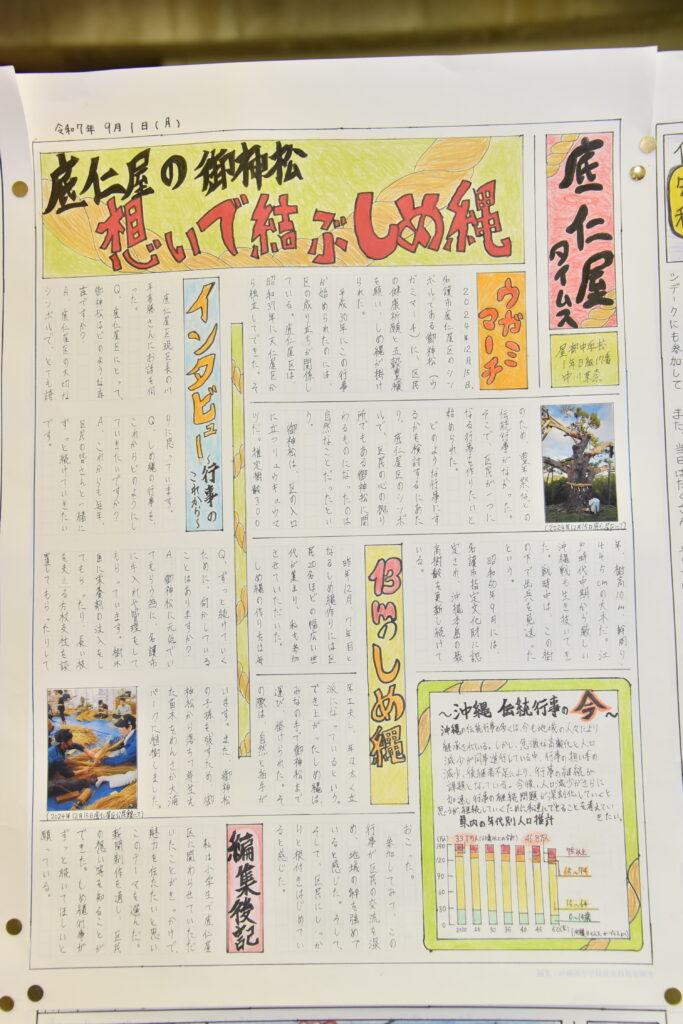 令和7年 9月1日(月)
底仁屋タイムス
屋部中学校
底仁屋の御神松
想いで結ぶしめ縄
ウガミマーチ
2024年12月15日、
名護市底仁屋区のシン
ボルである御神松(ウ
ガミマーチ)に、区民
の健康祈願と五穀豊穣
を願い、しめ縄が掛け
られた。
平成30年にこの行事
が始められたのには、
区の成り立ちが関係し
ている。底仁屋区は
昭和37年に天仁屋区か
ら独立してできた。そ
のため、豊年祭などの
伝統行事がなかった。
そこで、区民が一つに
なる行事を作りたいと
始められた。
どのような行事にす
るかを検討するにあた
り、底仁屋区のシンボ
ルで、区民の心の拠り
所でもある御神松に関
わるものになったのは
自然なことだったとい
う。
御神松は、区の入口
に立つリュウキュウマ
ツだ。推定樹齢300
年、樹高10m、幹周り
445cmの大木だ。江
戸時代中期から厳しい
沖縄戦も生き抜いてき
た。戦時中は、この街
の木で出兵を見送った
という。
昭和50年9月には、
名護市指定文化財に認
定され、沖縄本島の最
高樹齢を更新し続けて
いる。
(2024年12月15日底仁屋区にて)
13mのしめ縄
昨年12月、7年目と
なるしめ縄作りには区
民20名ほどの幅広い世
代が集まり、私も参加
させていただいた。
しめ縄の作り方は毎
年工夫し、年々太く立
派になっているという。
でき上がったしめ縄は、
みなの手で御神松まで
運び、掛けられた。そ
の際は、自然と拍手が
おこった。
参加してみて、この
行事が区民の交流を深
め、地域の絆を強めて
いると感じた。そして、
そして、区民にしっか
りと根付きはじめてい
ると感じた。
インタビュー
〜行事のこれから〜
底仁屋区現区長の川
平
さんにお話を伺
った。
Q.底仁屋区にとって、
御神松はどのような存
在ですか?
A.底仁屋区の大切な
シンボルで、とても誇
りに思っています。
Q.しめ縄の行事を、
これからどのようにし
ていきたいですか?
A.これからも毎年、
区民の皆さんと一緒に
ずっと続けていきたい
です。
Q.ずっと続けていく
ために、何かしている
ことはありますか?
A.御神松に元気でい
てもらう為に、名護市
にきちんと管理をして
もらっています。樹木
医に栄養剤の注入をし
てもらったり、長い枝
を支える支柱を設
置してもらったりして
います。また、御神松
の子孫を残すため、御
神松から落ちて芽生え
た苗木をわんさか大浦
パークに植樹しました。
(2024年12月15日底仁屋区公民館にて)
編集後記
私は小学生で底仁屋
区に関わらせていただ
いたことがきっかけで、
魅力を伝えたいと思い
このテーマを選んだ。
新聞制作を通し、区民
の想い等を知ることが
できた。しめ縄行事が
ずっと続いてほしいと
願っている。
〜沖縄 伝統行事の今〜
沖縄の伝統行事の多くは、今も地域の人々により
継承されている。しかし、急激な高齢化と人口
減少が同時進行している中、行事の担い手の
減少、後継者不足により、行事の継続が
課題となっている。今後、人口減少がさらに
加速し、行事の継続問題が深刻化していくと
思うが、継続していくために私達でできることを考えていき
たい。
県内の年代別人口推計
75歳以上
65〜74
15〜64
0〜14歳